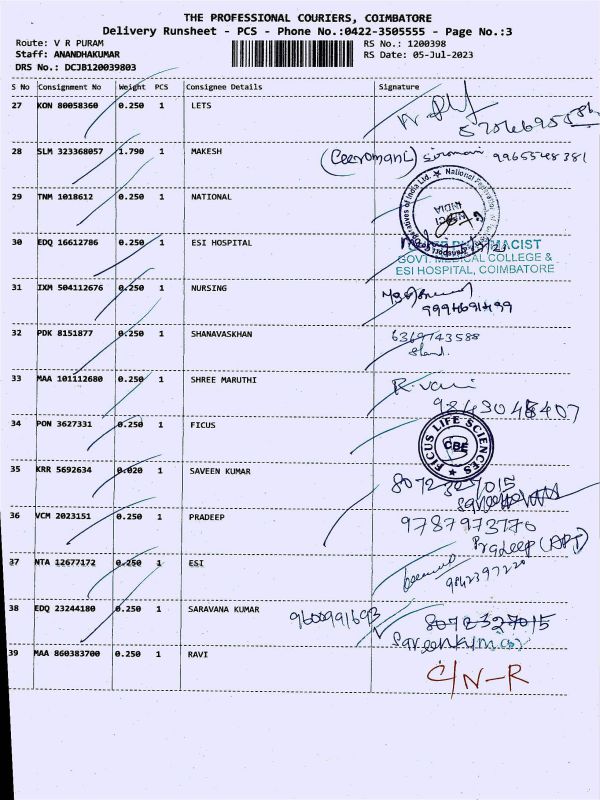 THE PROFESSIONAL COURIERS, COIMBATORE
Delivery Runsheet - PCS - Phone No.:0422-3505555 - Page No.:3
Route: V R PURAM RS No.: 1200398
Staff: ANANDHAKUMAR RS Date: 05-Jul-2023
DRS No.: DCJB120039803
S No Consignment No Weight PCS Consignee Details Signature
27 KON 80058360 0.250 1 LETS
28 SLM 323368057 1.790 1 MAKESH
9965548381
29 TNM 1018612 0.250 1 NATIONAL
INDIA
30 EDQ 16612786 0.250 1 ESI HOSPITAL
GOVT. MEDICAL COLLEGE &
ESI HOSPITAL, COIMBATORE
31 IXM 504112676 0.250 1 NURSING
9994691499
32 PDK 8151877 0.250 1 SHANAVASKHAN
6369743588
33 MAA 101112680 0.250 1 SHREE MARUTHI
R. Vani
9843048407
34 PON 3627331 0.250 1 FICUS
FICUS LIFE SCIENCES
CBE
35 KRR 5692634 0.020 1 SAVEEN KUMAR
8072327015
36 VCM 2023151 0.250 1 PRADEEP
9787973770
Pradeep (APT)
37 NTA 12677172 0.250 1 ESI
9842397220
38 EDQ 23244180 0.250 1 SARAVANA KUMAR
9600991693 8072327015
39 MAA 860383700 0.250 1 RAVI
C/N-R